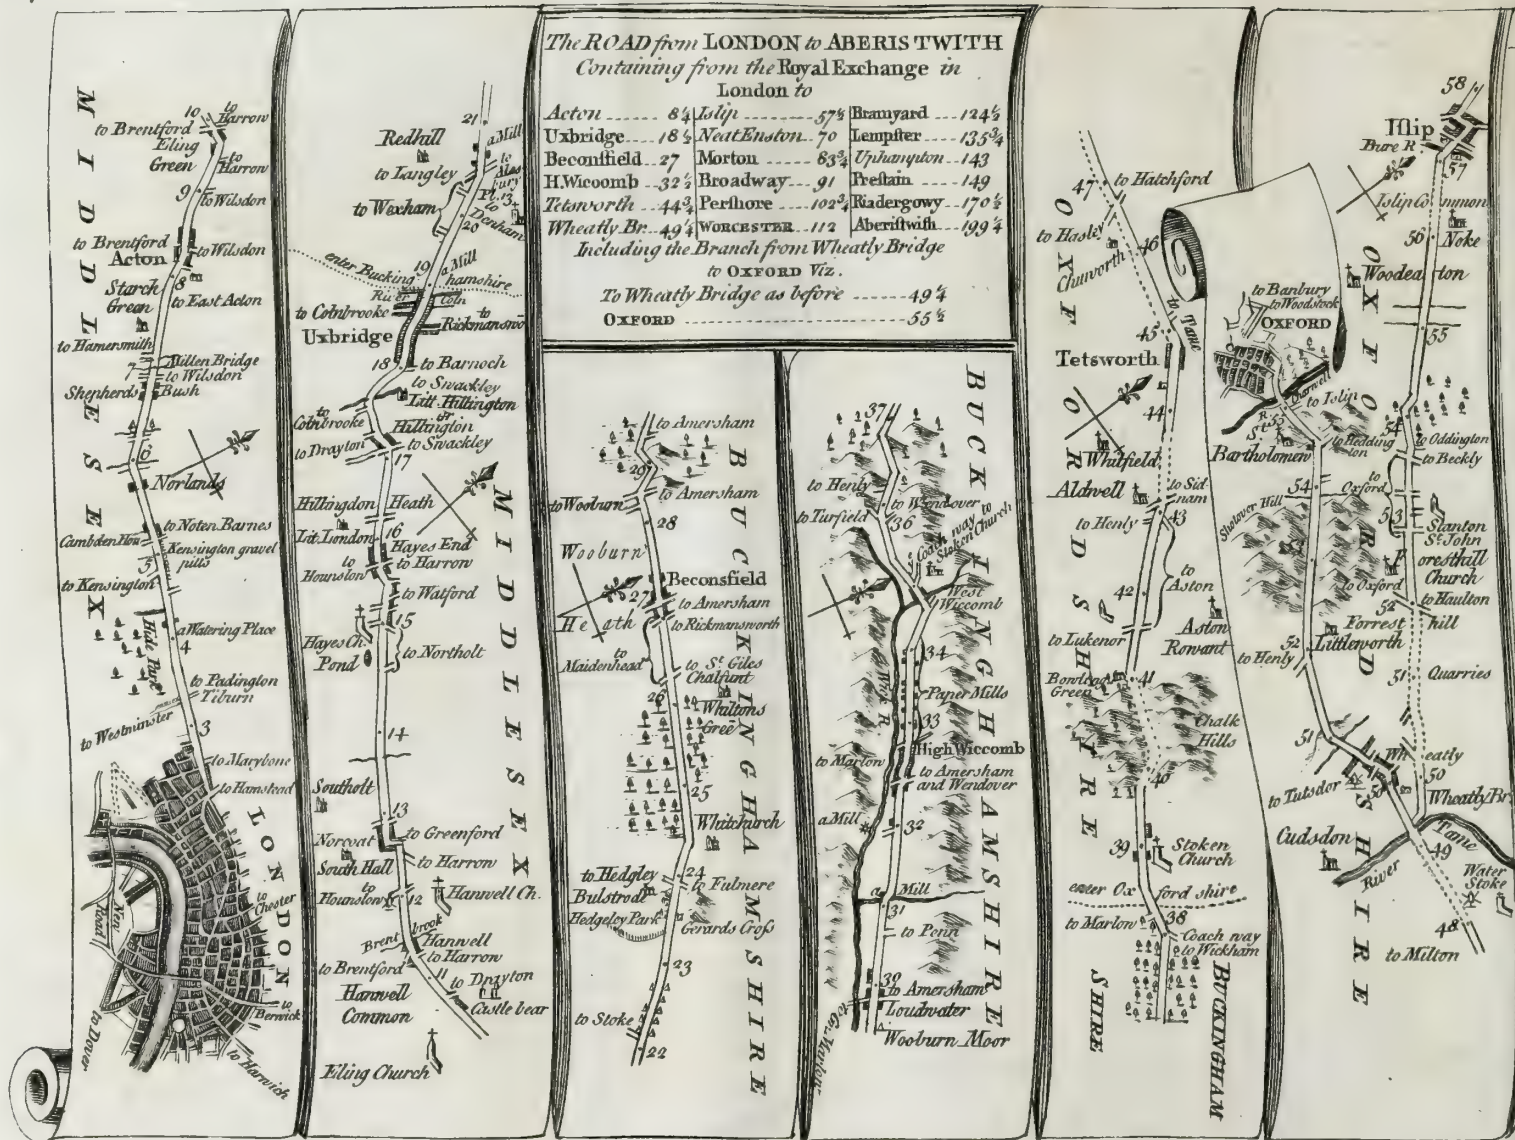 The ROAD from LONDON to ABERISTWITH
Containing from the Royal Exchange in
London to
Acton 8¼ Islip 57½ Bramyard 124½
Uxbridge 18½ Neat Enston 70 Lempster 135¾
Beconsfield 27 Morton 83¾ Uphampton 143
H.Wicomb 32½ Broadway 91 Prestain 149
Tetsworth 44¾ Pershore 102¾ Riadergowy 170½
Wheatly Br. 49¼ WORCESTER 112 Aberistwith 199¼
Including the Branch from Wheatly Bridge
to OXFORD Viz.
To Wheatly Bridge as before 49¼
OXFORD 55½
MIDDLESEX
10
to Harrow
to Brentford
Eling
Green
to Harrow
9
to Wilsdon
to Brentford
Acton
to Wilsdon
8
Starch
Green
to East Acton
to Hamersmith
7
Millen Bridge
to Wilsdon
Shepherds Bush
6
Norlands
to Noten Barnes
Cambden Hou
Kensington gravel
pitts
5
to Kensington
Hide Park
a Watering Place
4
to Padington
Tiburn
to Westminster
3
to Marybone
to Hamstead
LONDON
to Chester
New Road
to Berwick
to Dover
to Harwich
21
Redhill
a Mill
to Ales
bury
Pl.13
to Langley
to Wexham
to Denham
20
19
a Mill
enter Bucking hamshire
River Coln
to Colnbrooke
to Rickmanswo
Uxbridge
18
to Barnoch
to Swackley
Litt Hillington
to Colnbrooke
or
Hillington
to Drayton
to Swackley
17
Hillingdon Heath
Lit. London
16
Hayes End
to Harrow
to Hounslow
to Watford
15
Hayes Ch.
Pond
to Northolt
MIDDLESEX
14
Southolt
13
Norcoat
to Greenford
to Harrow
South Hall
to Hounslow
12
Hanwell Ch.
Brent brook
Hanwell
to Harrow
to Brentford
11
to Drayton
Hanwell
Common
Castle bear
Eling Church
to Amersham
29
to Wooburn
to Amersham
28
Wooburn
Heath
Beconsfield
27
to Amersham
to Rickmansworth
to Maidenhead
to St. Giles
Chalfunt
26
Whiltons
Gree
25
Whitchurch
24
to Hedgley
to Fulmere
Bulstrode
Hedgeley Park
Gerards Cross
23
to Stoke
22
BUCKINGHAMSHIRE
37
to Henly
to Wendover
to Turfield
36
Coach way to
Stoken Church
West
Wiccomb
34
Wick R.
Paper Mills
33
High Wiccomb
to Marlow
to Amersham
and Wendover
a Mill
32
a Mill
31
to Penn
30
to Amersham
Loudwater
to Gt. Marlow
Wooburn Moor
BUCKINGHAMSHIRE
47
to Hatchford
to Hasley
46
Chuworth
to Tame
45
Tetsworth
44
Whitfield
Aldwell
to Sid
nam
43
to Henly
to
Aston
42
to Lukenor
Aston
Rowant
Bowling
Green
41
Chalk
Hills
40
39
Stoken
Church
enter Ox ford shire
to Marlow
38
Coach way
to Wickham
OXFORDSHIRE
SHIRE
BUCKINGHAM
to Banbury
to Woodstock
OXFORD
Charwell
to Islip
R.
55
St.
Bartholomew
to Hedding
ton
54
Shotover Hill
53
52
Littleworth
to Henly
51
Wheatly
to Tutsdor
50
Cudsdon
58
Islip
Bure R.
57
Islip Common
56
Noke
Woodearton
55
54
to Oddington
to Beckly
to
Oxford
53
Stanton
St. John
Foresthill
Church
to Oxford
to Haulton
52
Forrest hill
51
Quarries
50
Wheatly Br.
River Tame
49
Water
Stoke
48
to Milton
OXFORDSHIRE